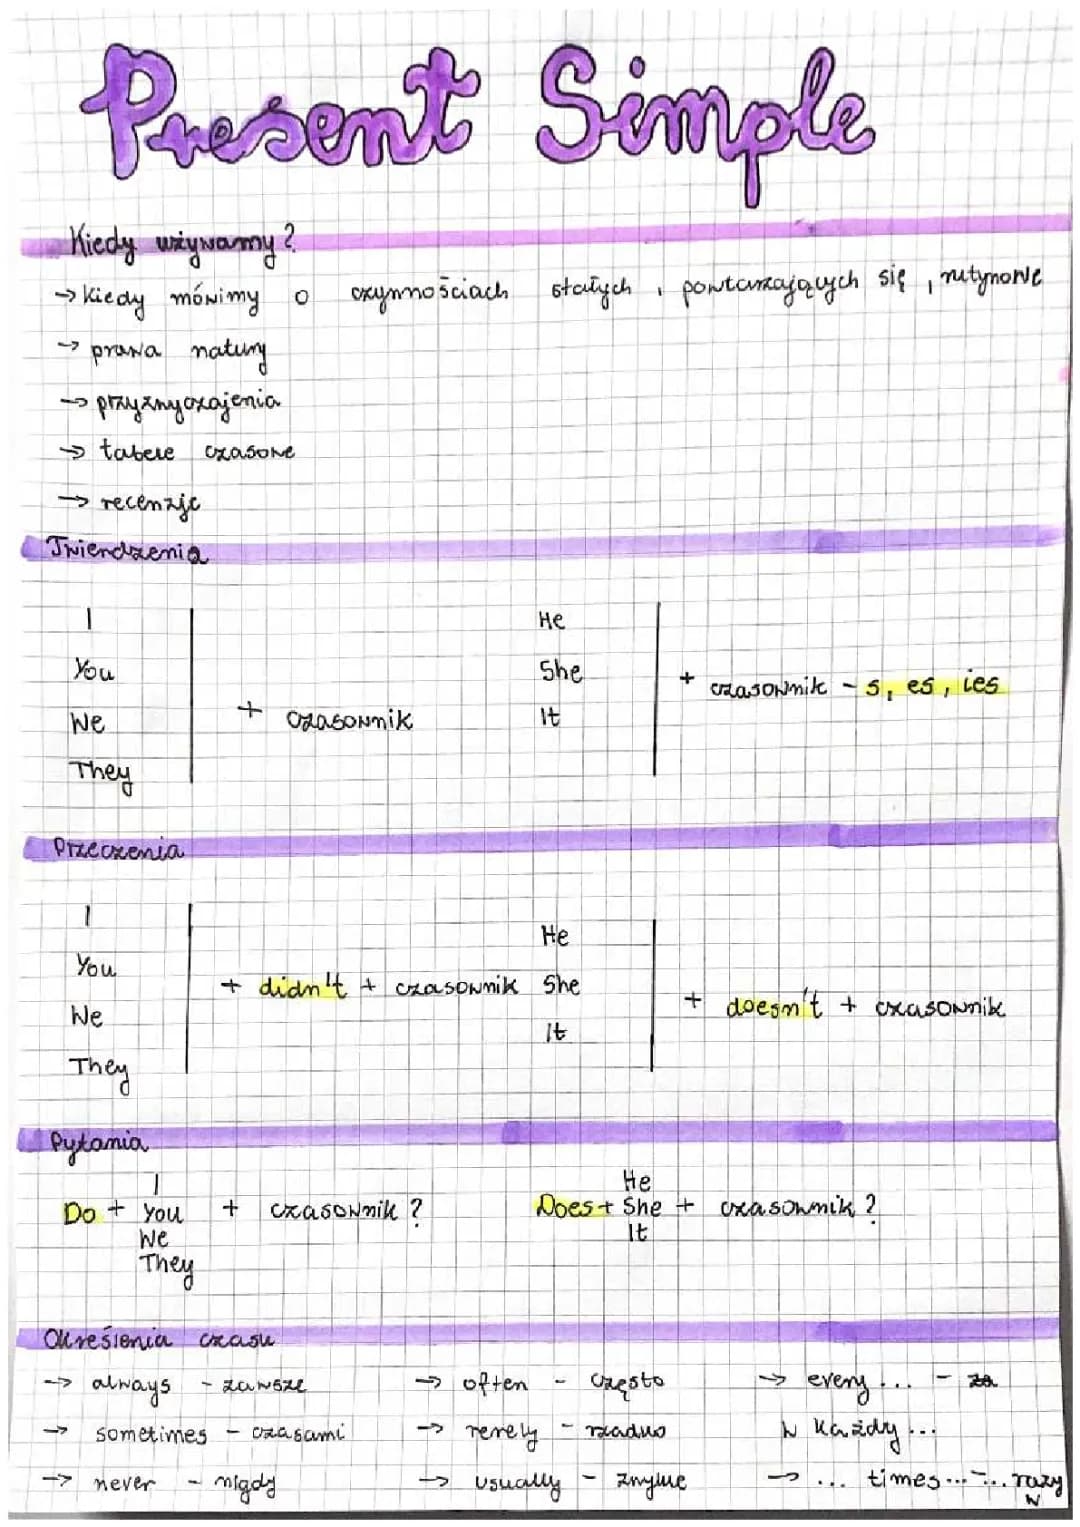 Present Simple
Kiedy używamy?
→ Kiedy mówimy o czynnościach stałych, powtarzających się, rutynowe
→ prawa natury
→ przyzwyczajenia
→ tabele czasowe
→ recenzje
Twierdzenia
I
You
We
They
+ czasownik
He
She
It
+ czasownik - s, es, ies
Przeczenia
I
You
We
They
+ didn't + czasownik
He
She
It
+ doesn't + czasownik
Pytania
Do + I You We They + czasownik?
Does + He She It + czasownik?
Określenia czasu
→ always - zawsze
→ sometimes - czasami
→ never - nigdy
→ often - często
→ rerely - rzadko
→ usually - zwykle
→ every... - za
w każdy...
→ ... times... - ... razy
w